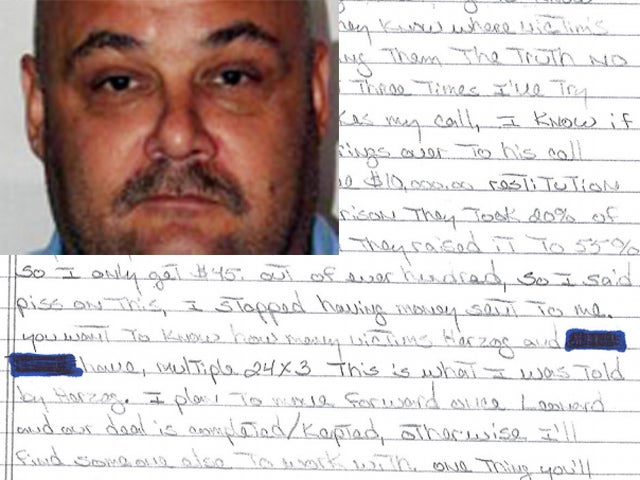 hey know where victims
ng Them The TruTh NO
Three Times I've Try
kes my call, I know if
rings over To his call
$10,000.00 resTiTuTion
rison They Took 20% of
They raised iT To 55%
So I only geT $45. ouT of ever hundred, so I said
piss on This, I sTopped having money senT To me.
you wanT To know how many vicTims Herzog and
have, mulTiple 24x3 This is whaT I was Told
by Herzog. I plan To move forward once Leonard
and our deal is compleTed/KapTed, oTherwise I'll
find someone else To work wiTh. one Thing you'll